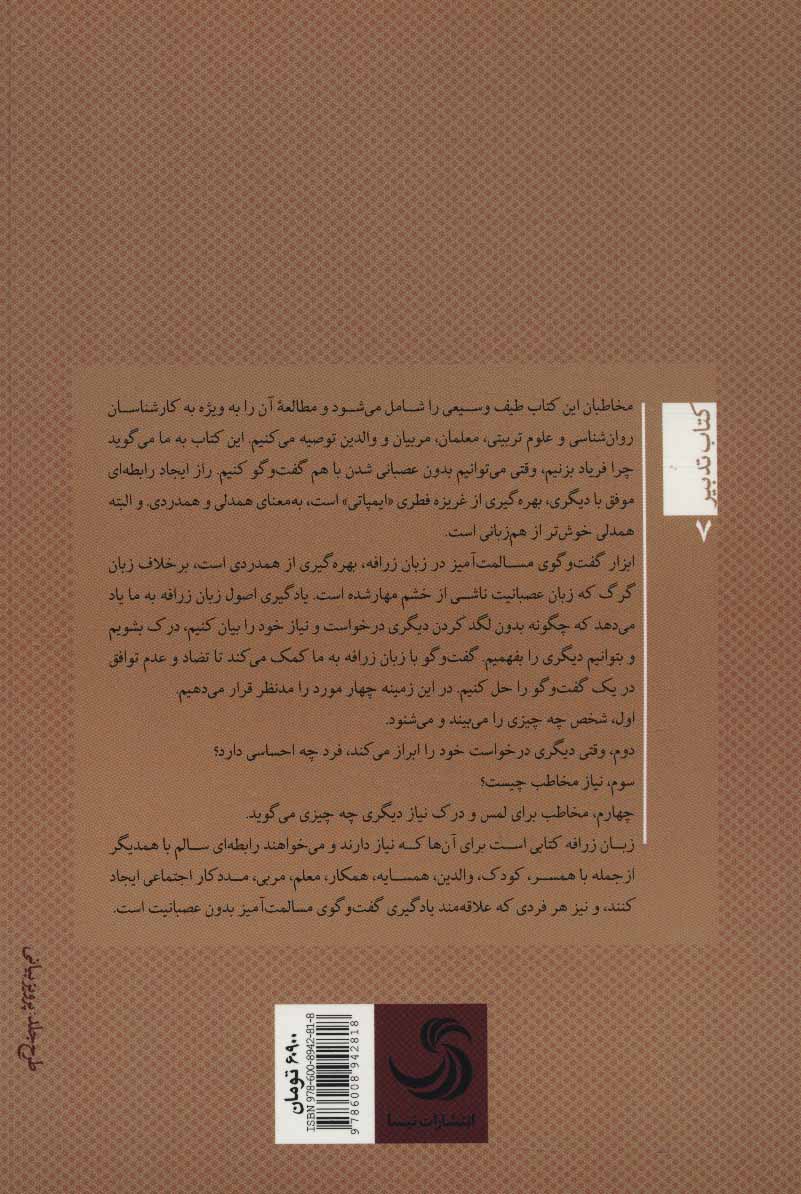 کتاب تدبیر
مخاطبان این کتاب طیف وسیعی را شامل می‌شود و مطالعهٔ آن را به ویژه به کارشناسان
روان‌شناسی و علوم تربیتی، معلمان، مربیان و والدین توصیه می‌کنیم. این کتاب به ما می‌گوید
چرا فریاد بزنیم، وقتی می‌توانیم بدون عصبانی شدن با هم گفت‌وگو کنیم. راز ایجاد رابطه‌ای
موفق با دیگری، بهره‌گیری از غریزه فطری «ایمپاتی» است، به‌معنای همدلی و همدردی. و البته
همدلی خوش‌تر از هم‌زبانی است.
ابزار گفت‌وگوی مسالمت‌آمیز در زبان زرافه، بهره‌گیری از همدردی است، برخلاف زبان
گرگ که زبان عصبانیت ناشی از خشم مهارشده است. یادگیری اصول زبان زرافه به ما یاد
می‌دهد که چگونه بدون لگد کردن دیگری درخواست و نیاز خود را بیان کنیم، درک بشویم
و بتوانیم دیگری را بفهمیم. گفت‌وگو با زبان زرافه به ما کمک می‌کند تا تضاد و عدم توافق
در یک گفت‌وگو را حل کنیم. در این زمینه چهار مورد را مدنظر قرار می‌دهیم.
اول، شخص چه چیزی را می‌بیند و می‌شنود.
دوم، وقتی دیگری درخواست خود را ابراز می‌کند، فرد چه احساسی دارد؟
سوم، نیاز مخاطب چیست؟
چهارم، مخاطب برای لمس و درک نیاز دیگری چه چیزی می‌گوید.
زبان زرافه کتابی است برای آن‌ها که نیاز دارند و می‌خواهند رابطه‌ای سالم با همدیگر
ازجمله با همسر، کودک، والدین، همسایه، همکار، معلم، مربی، مددکار اجتماعی ایجاد
کنند، و نیز هر فردی که علاقه‌مند یادگیری گفت‌وگوی مسالمت‌آمیز بدون عصبانیت است.
طرح جلد: پرویز بیانی
۶۰۹۰۰ تومان
ISBN 978-600-8942-81-8
9 786008 942818
انتشارات تیسا